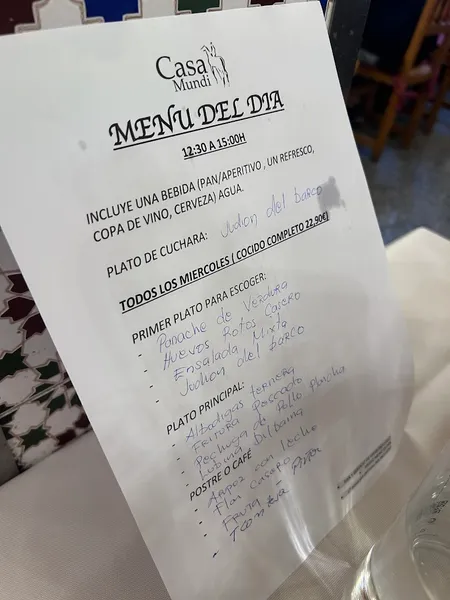 Casa
Mundi
MENU DEL DIA
12:30 A 15:00H
INCLUYE UNA BEBIDA (PAN/APERITIVO , UN REFRESCO,
COPA DE VINO, CERVEZA) AGUA.
PLATO DE CUCHARA: Judion del barco
TODOS LOS MIERCOLES ( COCIDO COMPLETO 22,90€)
PRIMER PLATO PARA ESCOGER:
- Panache de Verdura
- Huevos Rotos Casero
- Ensalada Mixta
- Judion del barco
PLATO PRINCIPAL:
- Albodigas ternera
- Fritura Pescado
- Pechuga de Pollo Plancha
- Lubina Bilbaina
POSTRE O CAFÉ
- Arroz con leche
- Flan Casero
- Fruta